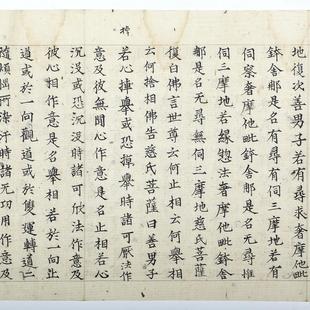 地復次善男子若有尋求奢摩他毗
鉢舍那是名有尋有伺三摩地若有
伺察奢摩他毗鉢舍那是名无尋惟
伺三摩地若緣惣法奢摩他毗鉢舍
那是名无尋無伺三摩地慈氏菩薩
復白佛言世尊云何止相云何舉相
云何捨相佛告慈氏菩薩曰善男子
若心掉舉或恐掉舉時諸可厭法作
意及彼無間心作意是名止相若心
沉沒或恐沉沒時諸可欣法作意及
彼心相作意是名舉相若於一向止
道或於一向觀道或於雙運轉道二
隨煩惱所染汙時諸无功用作意及